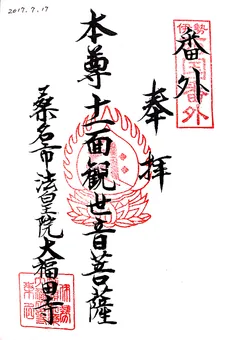 2017.7.17
番外
奉拝
本尊十一面観世音菩薩
桑名市法皇院大福田寺